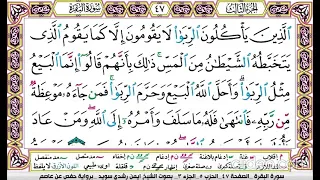 الجزء الثالث ٤٧ سورة البقرة
ٱلَّذِينَ يَأْكُلُونَ ٱلرِّبَوٰا۟ لَا يَقُومُونَ إِلَّا كَمَا يَقُومُ ٱلَّذِى
يَتَخَبَّطُهُ ٱلشَّيْطَٰنُ مِنَ ٱلْمَسِّ ذَٰلِكَ بِأَنَّهُمْ قَالُوٓا۟ إِنَّمَا ٱلْبَيْعُ
مِثْلُ ٱلرِّبَوٰا۟ وَأَحَلَّ ٱللَّهُ ٱلْبَيْعَ وَحَرَّمَ ٱلرِّبَوٰا۟ فَمَن جَآءَهُۥ مَوْعِظَةٌ
مِّن رَّبِّهِۦ فَٱنتَهَىٰ فَلَهُۥ مَا سَلَفَ وَأَمْرُهُۥٓ إِلَى ٱللَّهِ وَمَنْ عَادَ
سورة البقرة الصفحة ٤٧ الجزء ٣ بصوت الشيخ أيمن رشدي سويد برواية حفص عن عاصم